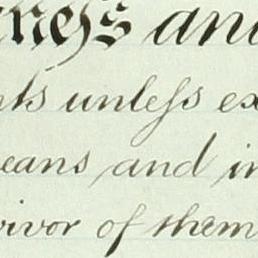 neſs and
nts unleſs ex
eans and in
vivor of them